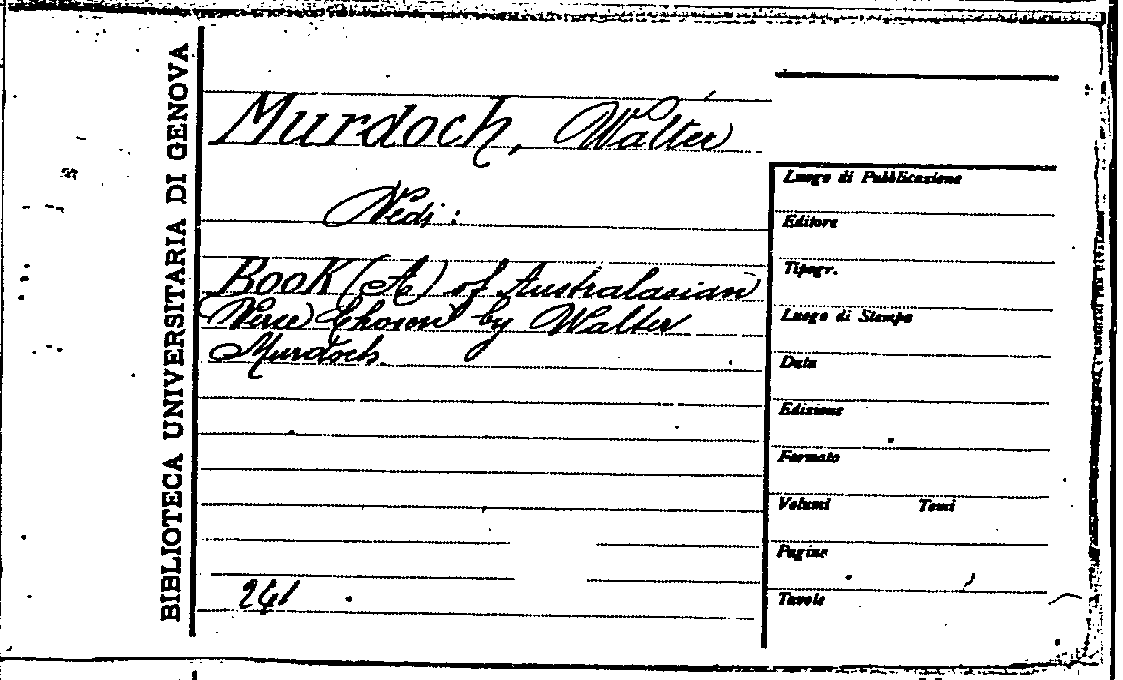 BIBLIOTECA UNIVERSITARIA DI GENOVA
Murdoch, Walter
Vedi:
Book (A) of Australasian
Verse Chosen by Walter
Murdoch.
241
Luogo di Pubblicazione
Editore
Tipogr.
Luogo di Stampa
Data
Edizione
Formato
Volumi Tomi
Pagine
Tavole